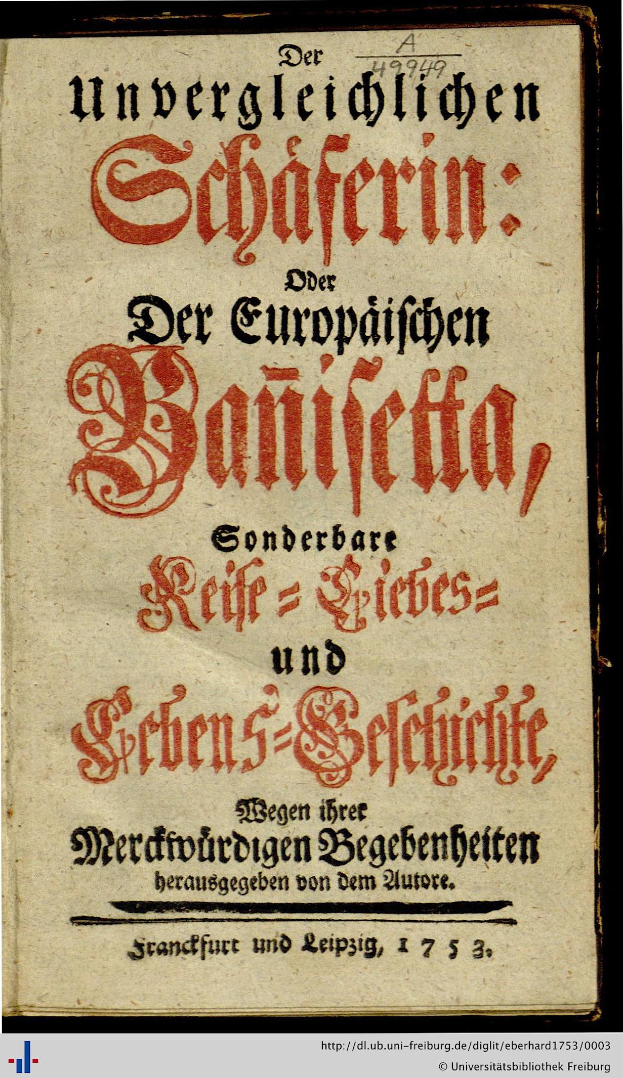 Der
A
49949
Unvergleichlichen
Schäferin:
Oder
Der Europäischen
Bañisetta,
Sonderbare
Reise- Liebes-
und
Lebens-Geschichte,
Wegen ihrer
Merckwürdigen Begebenheiten
herausgegeben von dem Autore.
Franckfurt und Leipzig, 1753.
http://dl.ub.uni-freiburg.de/diglit/eberhard1753/0003
© Universitätsbibliothek Freiburg